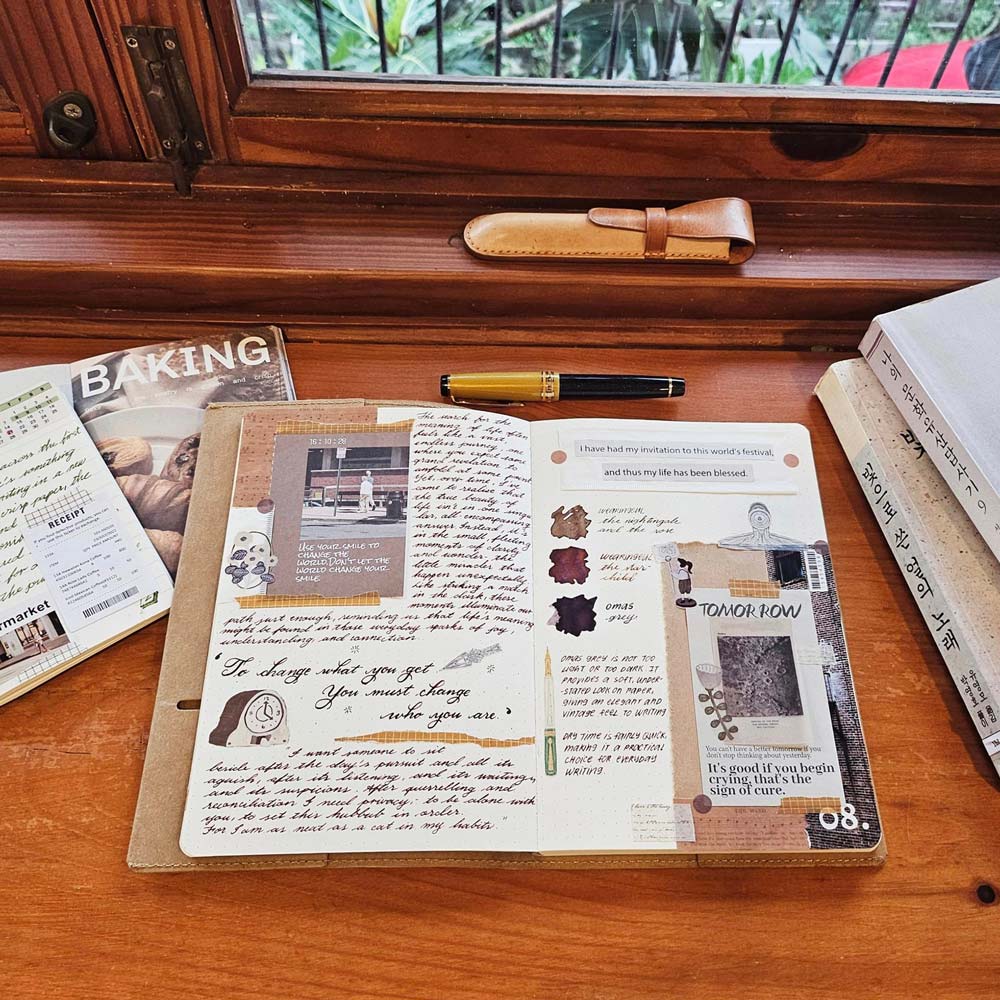 BAKING
across the first
something
writing in a new
paper, the
RECEIPT
market
16:10:28
USE YOUR SMILE TO
CHANGE THE
WORLD, DON'T LET THE
WORLD CHANGE YOUR
SMILE
The search for the
meaning of life often
feels like a vast,
endless journey, an
where you expect some
grand revelation to
unfold at some point.
Yet, over time, I've
come to realise that
the true beauty of
life isn't in one singu-
lar, all encompassing
answer. Instead it's
in the small, fleeting
moments of clarity
and wonder, the
little miracles that
happen unexpectedly
like striking a match
in the dark, these
moments illuminate our
path just enough, reminding us that life's meaning
might be found in these everyday sparks of joy,
understanding, and connection.
'To change what you get
You must change
who you are.'
"I want someone to sit
beside after the day's pursuit and all its
aguish, after its listening, and its waitings,
and its suspicions. After quarrelling and
reconciliation I need privacy: to be alone with
you, to set this hubbub in order.
For I am as neat as a cat in my habits."
I have had my invitation to this world's festival,
and thus my life has been blessed.
the nightingale
and the rose
the star-
child
omas
grey.
OMAS GREY IS NOT TOO
LIGHT OR TOO DARK. IT
PROVIDES A SOFT, UNDER-
STATED LOOK ON PAPER,
GIVING AN ELEGANT AND
VINTAGE FEEL TO WRITING
DRY TIME IS FAIRLY QUICK,
MAKING IT A PRACTICAL
CHOICE FOR EVERYDAY
WRITING.
TOMORROW
You can't have a better tomorrow if you
don't stop thinking about yesterday.
It's good if you begin
crying, that's the
sign of cure.
08.
나의 문화유산답사기 9
빛으로 쓴 얼의 노래